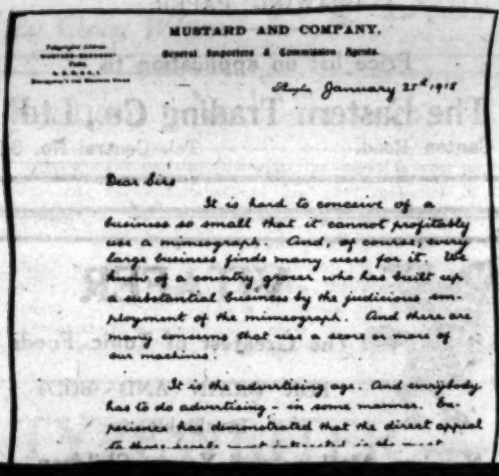 MUSTARD AND COMPANY.
General Importers & Commission Agents.
Telegraphic Address
January 25th 1915
Dear Sirs
It is hard to conceive of a
business so small that it cannot profitably
use a mimeograph. And, of course, every
large business finds many uses for it. We
know of a country grocer who has built up
a substantial business by the judicious em-
ployment of the mimeograph. And there are
many firms that use a score or more of
our machines.
It is the advertising age. And everybody
has to do advertising - in some manner. Ex-
perience has demonstrated that the direct appeal
to those people most interested is the most